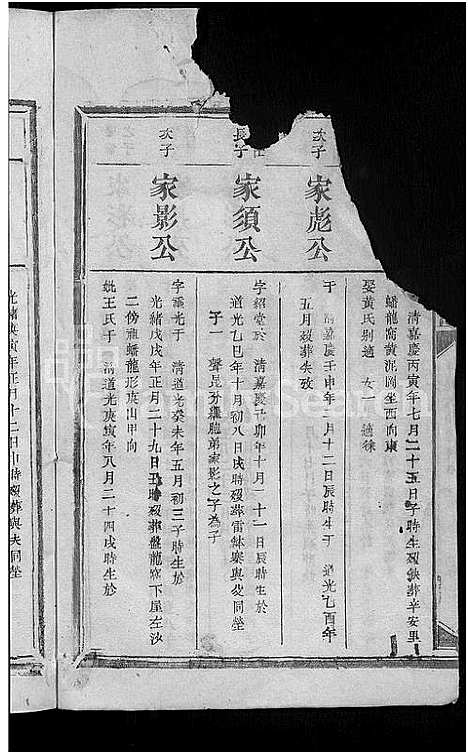 清嘉慶丙寅年七月二十五日子時生歿缺葬辛安里
蟠龍窩黃泥圖坐西向東
娶黃氏別適 女一 適徐
次子
家彪公
于 清嘉慶壬申年 月十二日辰時生于 道光乙酉年
五月歿葬失攷
長子
家須公
字紹堂於 清嘉慶 卯年十月二十一日辰時生於
道光乙巳年十月初八日戌時歿葬雷 寨與父同塋
子一 聲昆 胞弟家影之子為子
次子
家影公
字 光于 清道光癸未年五月初三子時生於
光緒戊戌年正月二十九日 時歿葬盤龍窩下屋左沙
二傍 蟠龍形庚山甲向
妣王氏于 清道光庚寅年八月二十四戌時生於
光緒庚寅年正月十二日 時歿葬與夫同塋